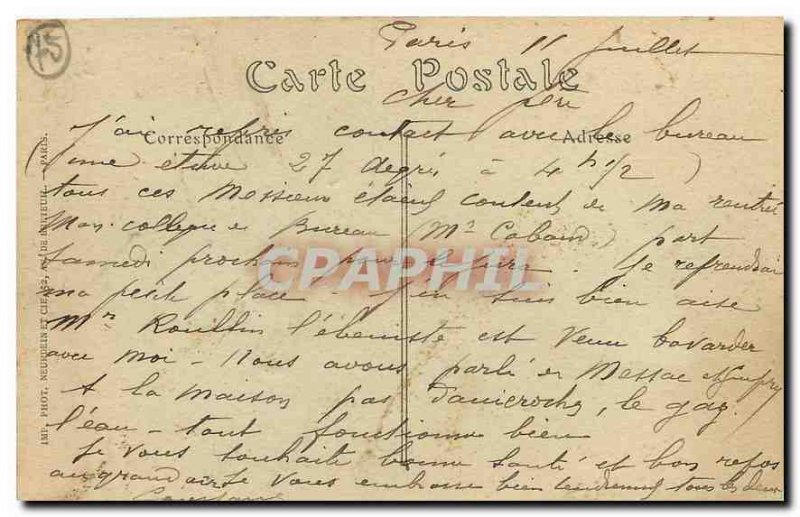 15
Paris 11 Juillet
Carte Postale
Cher père
J'ai repris contact avec le bureau
Correspondance Adresse
(une étuve 27 degrés à 4 h 1/2)
tous ces Messieurs étaient contents de ma rentrée
Mon collègue de Bureau (Mr Caband) part
Samedi prochain pour le Jura. Je reprendrai
ma petite place. J'en suis bien aise
Mr l'ébeniste est venu bavarder
avec moi - Nous avons parlé de Messac
A la maison pas d'anicroche, le gaz
l'eau - tout fonctionne bien
Je vous souhaite bonne santé et bon repos
au grand air et vous embrasse bien tendrement tous les deux
CPAPHIL
IMP. PHOT. NEURDEIN ET CIE. 52, AV. DE BRETEUIL - PARIS.